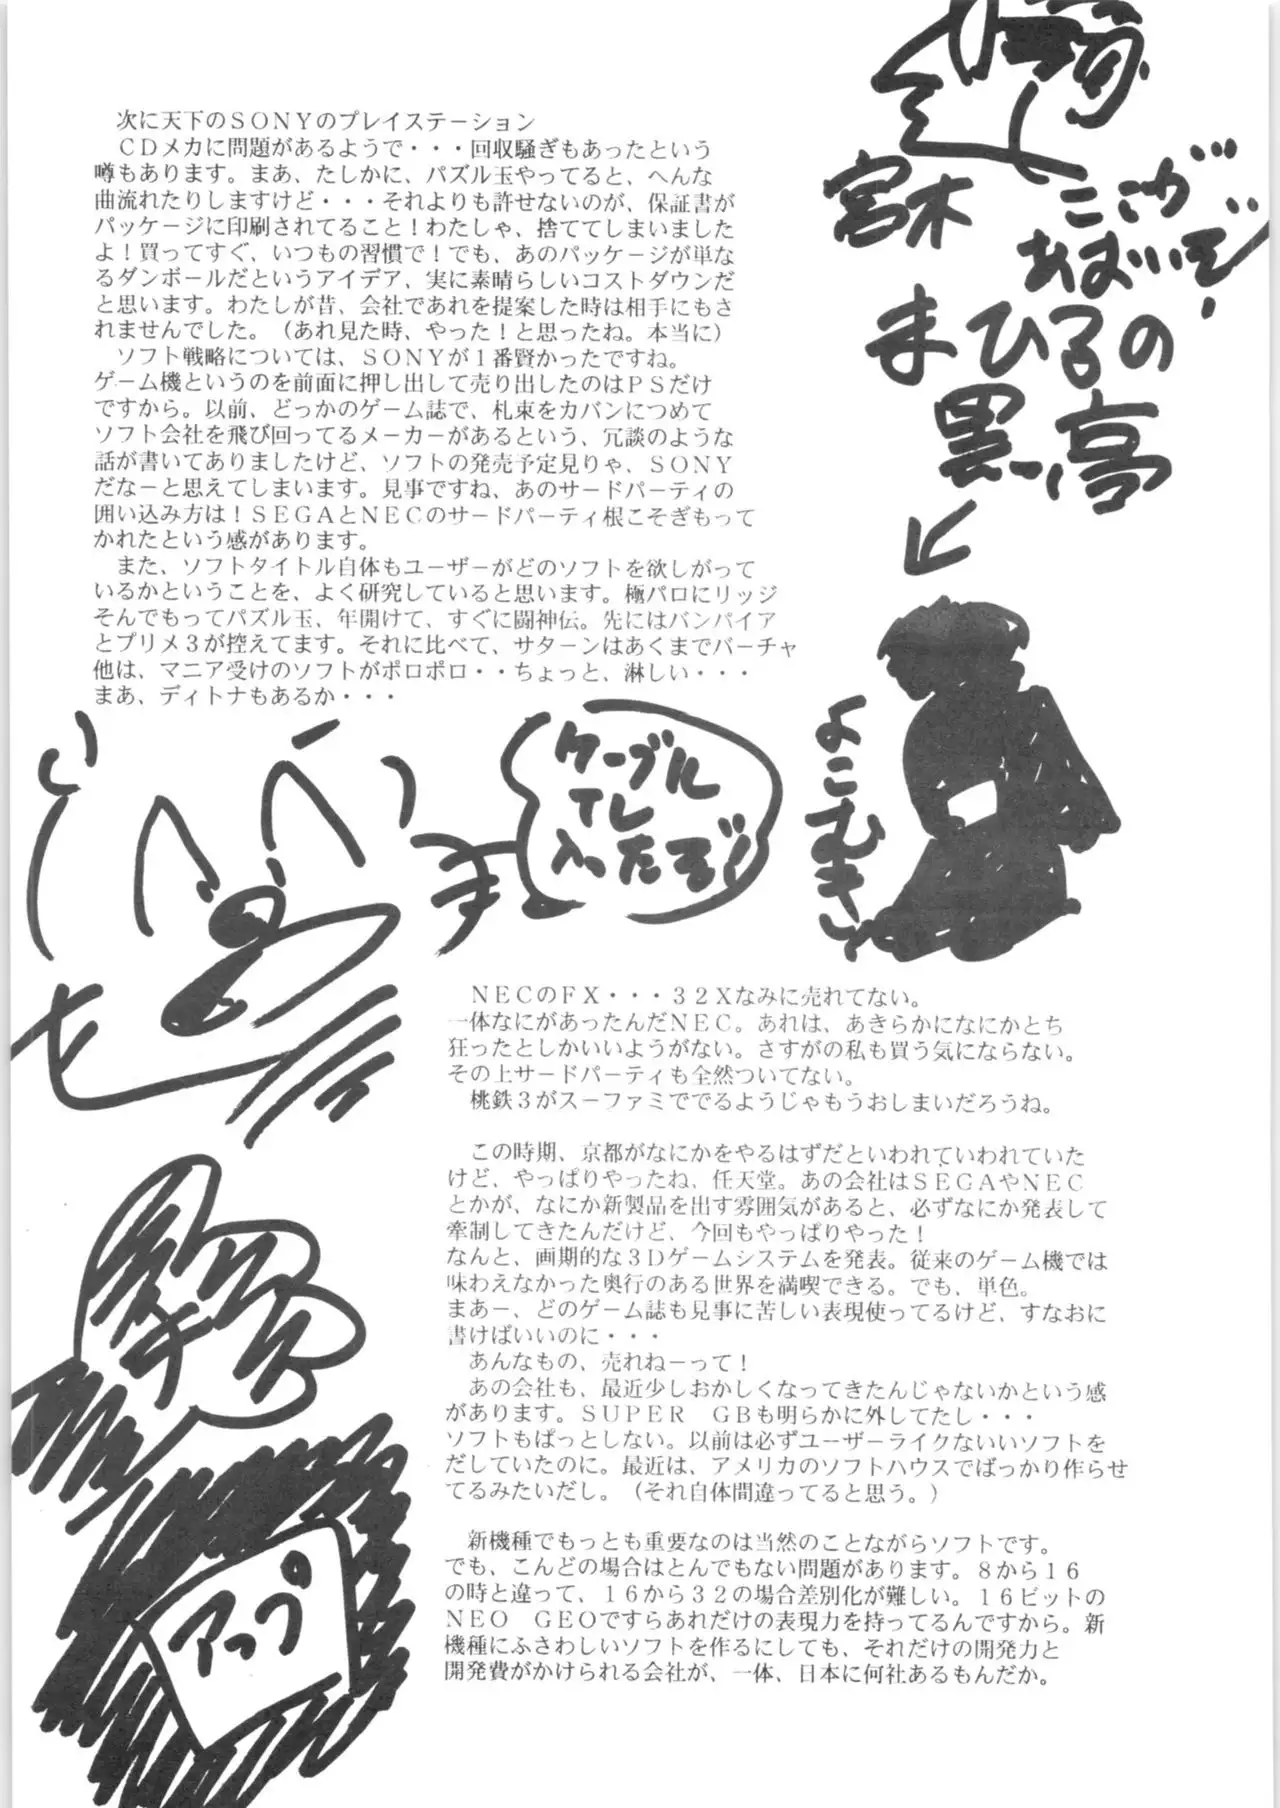 次に天下のＳＯＮＹのプレイステーション
ＣＤメカに問題があるようで・・・回収騒ぎもあったという
噂もあります。まあ、たしかに、パズル玉やってると、へんな
曲流れたりしますけど・・・それよりも許せないのが、保証書が
パッケージに印刷されてること！わたしゃ、捨ててしまいました
よ！買ってすぐ、いつもの習慣で！でも、あのパッケージが単な
るダンボールだというアイデア、実に素晴らしいコストダウンだ
と思います。わたしが昔、会社であれを提案した時は相手にもさ
れませんでした。（あれ見た時、やった！と思ったね。本当に）
ソフト戦略については、ＳＯＮＹが１番賢かったですね。
ゲーム機というのを前面に押し出して売り出したのはＰＳだけ
ですから。以前、どっかのゲーム誌で、札束をカバンにつめて
ソフト会社を飛び回ってるメーカーがあるという、冗談のような
話が書いてありましたけど、ソフトの発売予定見りゃ、ＳＯＮＹ
だなーと思えてしまいます。見事ですね、あのサードパーティの
囲い込み方は！ＳＥＧＡとＮＥＣのサードパーティ根こそぎもって
かれたという感があります。
また、ソフトタイトル自体もユーザーがどのソフトを欲しがって
いるかということを、よく研究していると思います。極パロにリッジ
そんでもってパズル玉、年開けて、すぐに闘神伝。先にはバンパイア
とプリメ３が控えてます。それに比べて、サターンはあくまでバーチャ
他は、マニア受けのソフトがポロポロ・・ちょっと、淋しい・・・
まあ、ディトナもあるか・・・
宮木
ここが
あまいぞ！
まひるの
黒い亭
よこむき
ケーブル
テレ
入ったぞ！
ＮＥＣのＦＸ・・・３２Ｘなみに売れてない。
一体なにがあったんだＮＥＣ。あれは、あきらかになにかとち
狂ったとしかいいようがない。さすがの私も買う気にならない。
その上サードパーティも全然ついてない。
桃鉄３がスーファミででるようじゃもうおしまいだろうね。
この時期、京都がなにかをやるはずだといわれていわれていた
けど、やっぱりやったね、任天堂。あの会社はＳＥＧＡやＮＥＣ
とかが、なにか新製品を出す雰囲気があると、必ずなにか発表して
牽制してきたんだけど、今回もやっぱりやった！
なんと、画期的な３Ｄゲームシステムを発表。従来のゲーム機では
味わえなかった奥行のある世界を満喫できる。でも、単色。
まあー、どのゲーム誌も見事に苦しい表現使ってるけど、すなおに
書けばいいのに・・・
あんなもの、売れねーって！
あの会社も、最近少しおかしくなってきたんじゃないかという感
があります。ＳＵＰＥＲ　ＧＢも明らかに外してたし・・・
ソフトもぱっとしない。以前は必ずユーザーライクないいソフトを
だしていたのに。最近は、アメリカのソフトハウスでばっかり作らせ
てるみたいだし。（それ自体間違ってると思う。）
新機種でもっとも重要なのは当然のことながらソフトです。
でも、こんどの場合はとんでもない問題があります。８から１６
の時と違って、１６から３２の場合差別化が難しい。１６ビットの
ＮＥＯ　ＧＥＯですらあれだけの表現力を持ってるんですから。新
機種にふさわしいソフトを作るにしても、それだけの開発力と
開発費がかけられる会社が、一体、日本に何社あるもんだか。
アップ